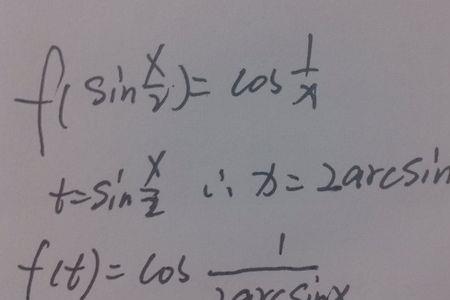 f(sin x/2) = cos 1/x
t = sin x/2 ∴ x = 2arcsin
f(t) = cos 1/2arcsinx